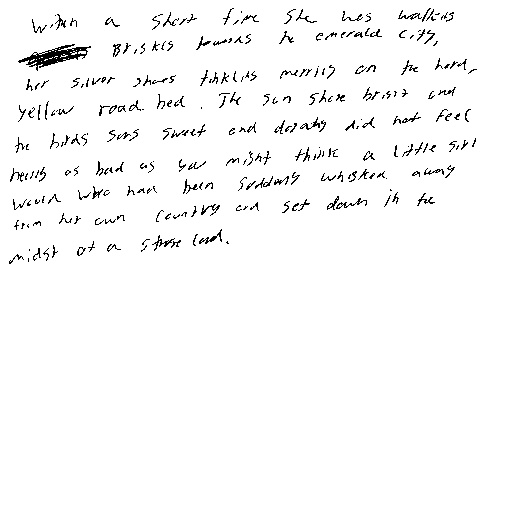 Within a short time she was walking
briskly towards the emerald city,
her silver shoes tinkling merrily on the hard,
yellow road bed. The sun shone bright and
the birds sang sweet and dorothy did not feel
nearly as bad as you might think a little girl
would who had been suddenly whisked away
from her own country and set down in the
midst of a strange land.